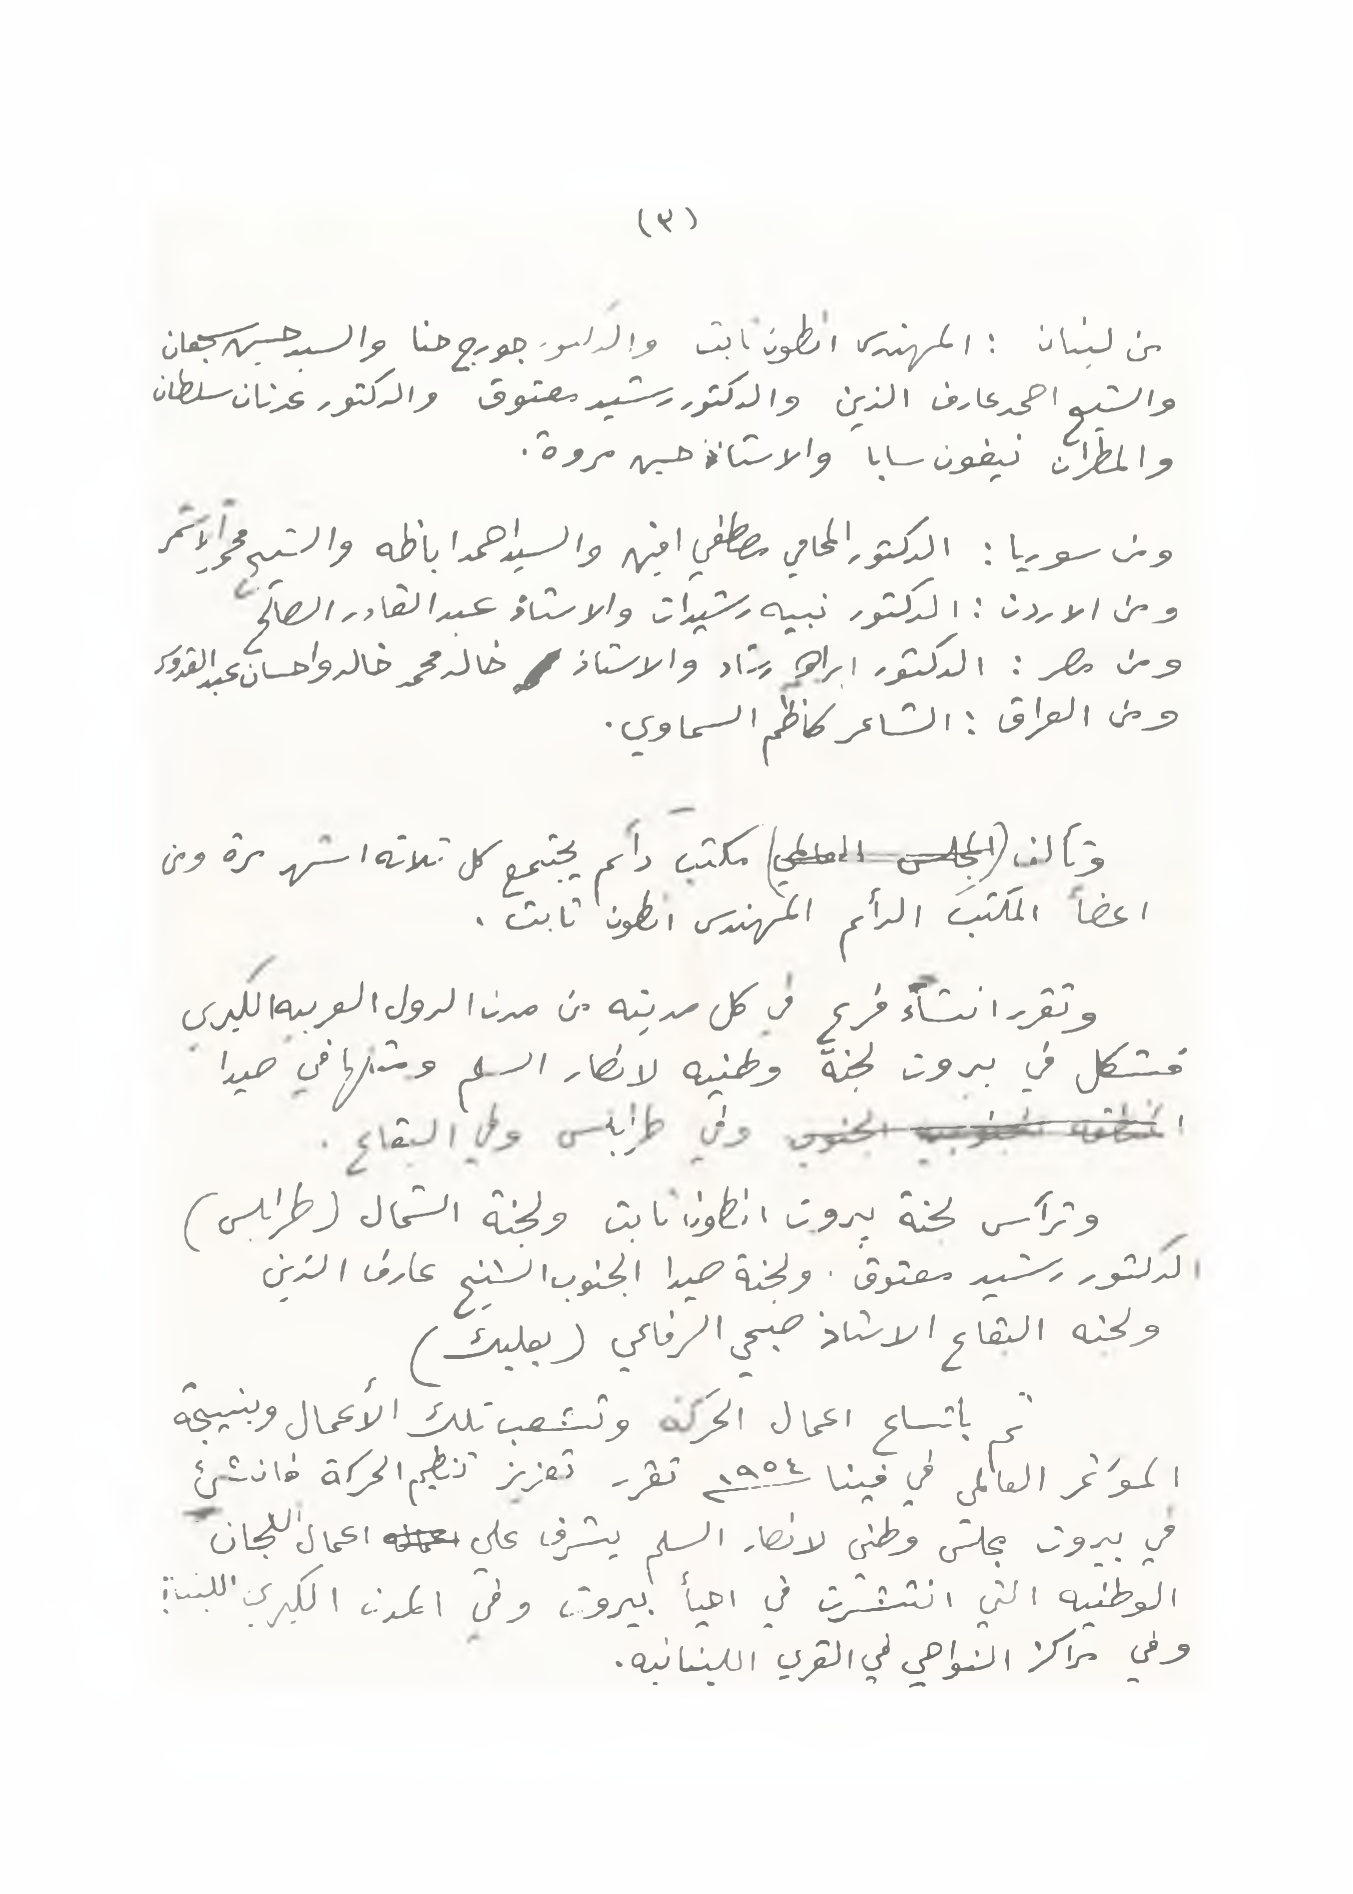 (٣)
من لبنان : المهندس انطون ثابت والدكتور جورج حنا والسيد حسين سجعان
والشيخ احمد عارف الزين والدكتور رشيد معتوق والدكتور عدنان سلطان
والمطران نيفون سابا والاستاذ حسين مروة .
ومن سوريا : الدكتور المحامي مصطفى امين والسيد احمد اباظه والشيخ محمد الاشمر
ومن الاردن : الدكتور نبيه رشيدات والاستاذ عبد القادر الصالح
ومن مصر : الدكتور ابراهيم رشاد والاستاذ خالد محمد خالد واحسان عبد القدوس
ومن العراق : الشاعر كاظم السماوي .
وتألف (المجلس العالمي) مكتب دائم يجتمع كل ثلاثه اشهر مرة ومن
اعضأ المكتب الدأئم المهندس انطون ثابت .
وتقرر انشاء فرع في كل مدينه من مدن الدول العربيه الكبرى
فتشكل في بيروت لجنة وطنيه لانصار السلم ومثلها في صيدا
المنطقه الجنوبيه الجنوب وفي طرابلس وفي البقاع .
وترأس لجنة بيروت انطون ثابت ولجنة الشمال (طرابلس)
الدكتور رشيد معتوق . ولجنة صيدا الجنوب الشيخ عارف الزين
ولجنه البقاع الاستاذ صبحي الرفاعي (بعلبك)
ثم باتساع اعمال الحركه وتشعب تلك الأعمال وبنتيجة
المؤتمر العالمي في فينا ١٩٥٤ تقرر تعزيز تنظيم الحركة فانشئ
في بيروت مجلس وطني لانصار السلم يشرف على اعمال اللجان
الوطنيه التي انتشرت في احيأ بيروت وفي المدن الكبرى اللبنانية
وفي مراكز النواحي في القرى اللبنانيه .